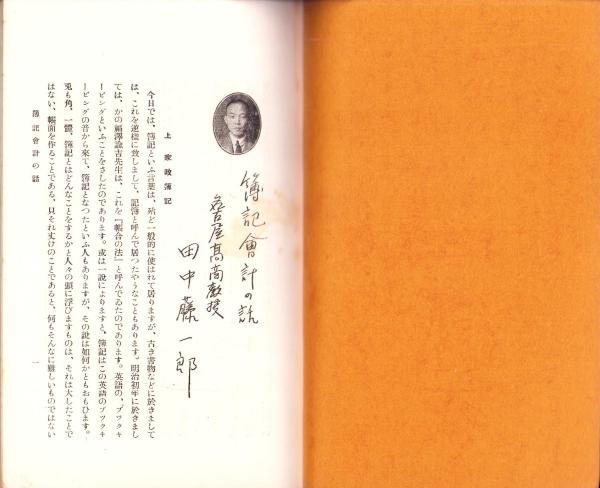 簿記會計の話
名古屋高商教授
田中藤一郎
上 家政簿記
今日では、簿記といふ言葉は、殆ど一般的に使はれて居りますが、古き書物などに於きまして
は、これを逆樣に致しまして、記簿と呼んで居つたやうなこともあります。明治初年に於きまし
ては、かの福澤諭吉先生は、これを『帳合の法』と呼んでゐたのであります。英語の、ブツクキ
ーピングといふことをさしたのであります。或は一説によりますと、簿記はこの英語のブツクキ
ーピングの音から來て、簿記となつたといふ人もありますが、その説は如何かともおもひます。
兎も角、一體、簿記とはどんなことをするかと人々の頭に浮びますものは、それは大したことで
はない、帳面を作ることである、只それ丈けのことであると、何もそんなに難しいものではない
簿記會計の話
一